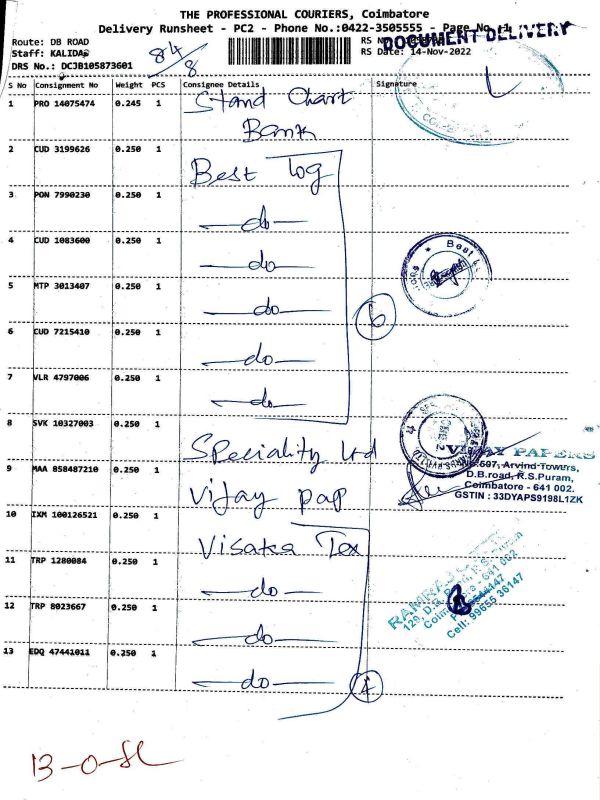 THE PROFESSIONAL COURIERS, Coimbatore
Delivery Runsheet - PC2 - Phone No.:0422-3505555 - Page No
DOCUMENT DELIVERY
Route: DB ROAD
Staff: KALIDAS
RS Date: 14-Nov-2022
DRS No.: DCJB105873601
S No Consignment No Weight PCS Consignee Details Signature
1 PRO 14075474 0.245 1 Stand Chart
Bank
2 CUD 3199626 0.250 1 Best log
3 PON 7990230 0.250 1 —do—
4 CUD 1083600 0.250 1 —do—
5 MTP 3013407 0.250 1 —do—
6
6 CUD 7215410 0.250 1 —do—
7 VLR 4797006 0.250 1 —do—
8 SVK 10327003 0.250 1 Speciality Ltd
VIJAY PAPERS
9 MAA 858487210 0.250 1 Vijay pap
597, Arvind Towers,
D.B.road, R.S.Puram,
Coimbatore - 641 002.
GSTIN : 33DYAPS9198L1ZK
10 IXM 100126521 0.250 1 Visaka Tex
11 TRP 1280084 0.250 1 —do—
12 TRP 8023667 0.250 1 —do—
Cell: 99655 36147
13 EDQ 47441011 0.250 1 —do—
4